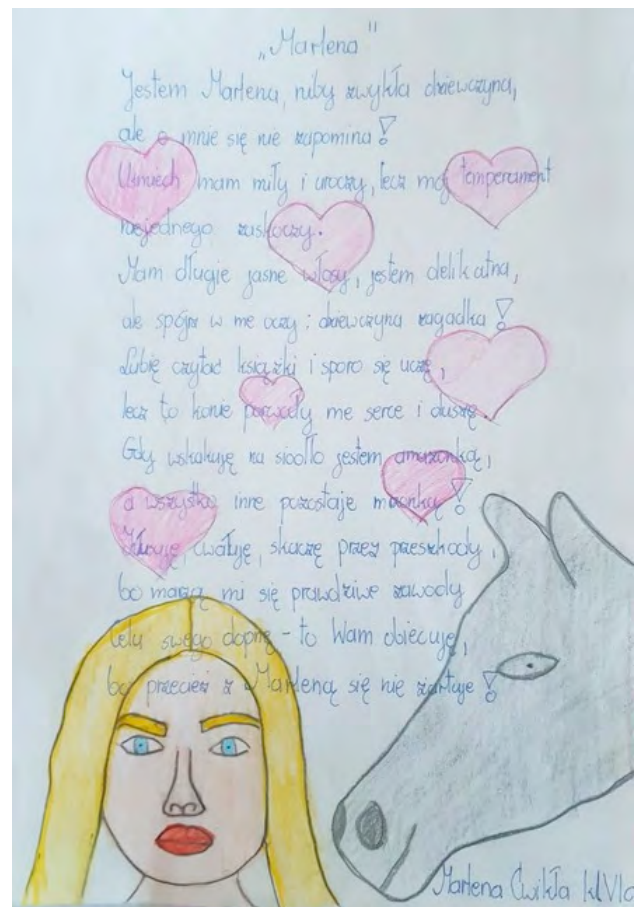 „Marlena"
Jestem Marlena, niby zwykła dziewczyna,
ale o mnie się nie zapomina!
Uśmiech mam miły i uroczy, lecz mój temperament
niejednego zaskoczy.
Mam długie jasne włosy, jestem delikatna,
ale spójrz w me oczy: dziewczyna zagadka!
Lubię czytać książki i sporo się uczę,
lecz to konie porwały me serce i duszę
Gdy wskakuję na siodło jestem amazonką,
a wszystko inne pozostaje mrzonką!
cwałuję, skaczę przez przeszkody,
bo marzą mi się prawdziwe zawody
Celu swego dopnę - to Wam obiecuję,
bo przecież z Marleną się nie żartuje!
Marlena Ćwikła kl VIa